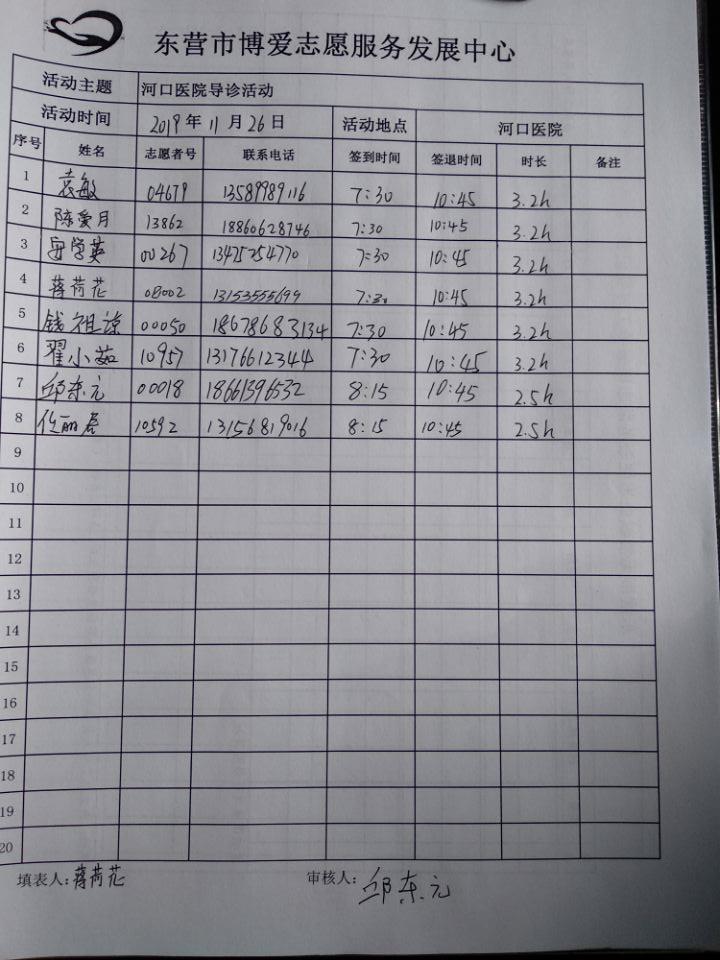 东营市博爱志愿服务发展中心
活动主题 河口医院导诊活动
活动时间 2019年11月26日 活动地点 河口医院
序号 姓名 志愿者号 联系电话 签到时间 签退时间 时长 备注
1 袁敏 04679 13589989116 7:30 10:45 3.2h
2 陈爱月 13862 18860628746 7:30 10:45 3.2h
3 学英 00267 13475254770 7:30 10:45 3.2h
4 蒋荷花 08002 13153555699 7:30 10:45 3.2h
5 钱祖谅 00050 18678683134 7:30 10:45 3.2h
6 翟小茹 10957 13176612344 7:30 10:45 3.2h
7 邱东元 00018 18661396532 8:15 10:45 2.5h
8 任丽君 10592 13156819016 8:15 10:45 2.5h
9
10
11
12
13
14
15
16
17
18
19
20
填表人:蒋荷花 审核人:邱东元